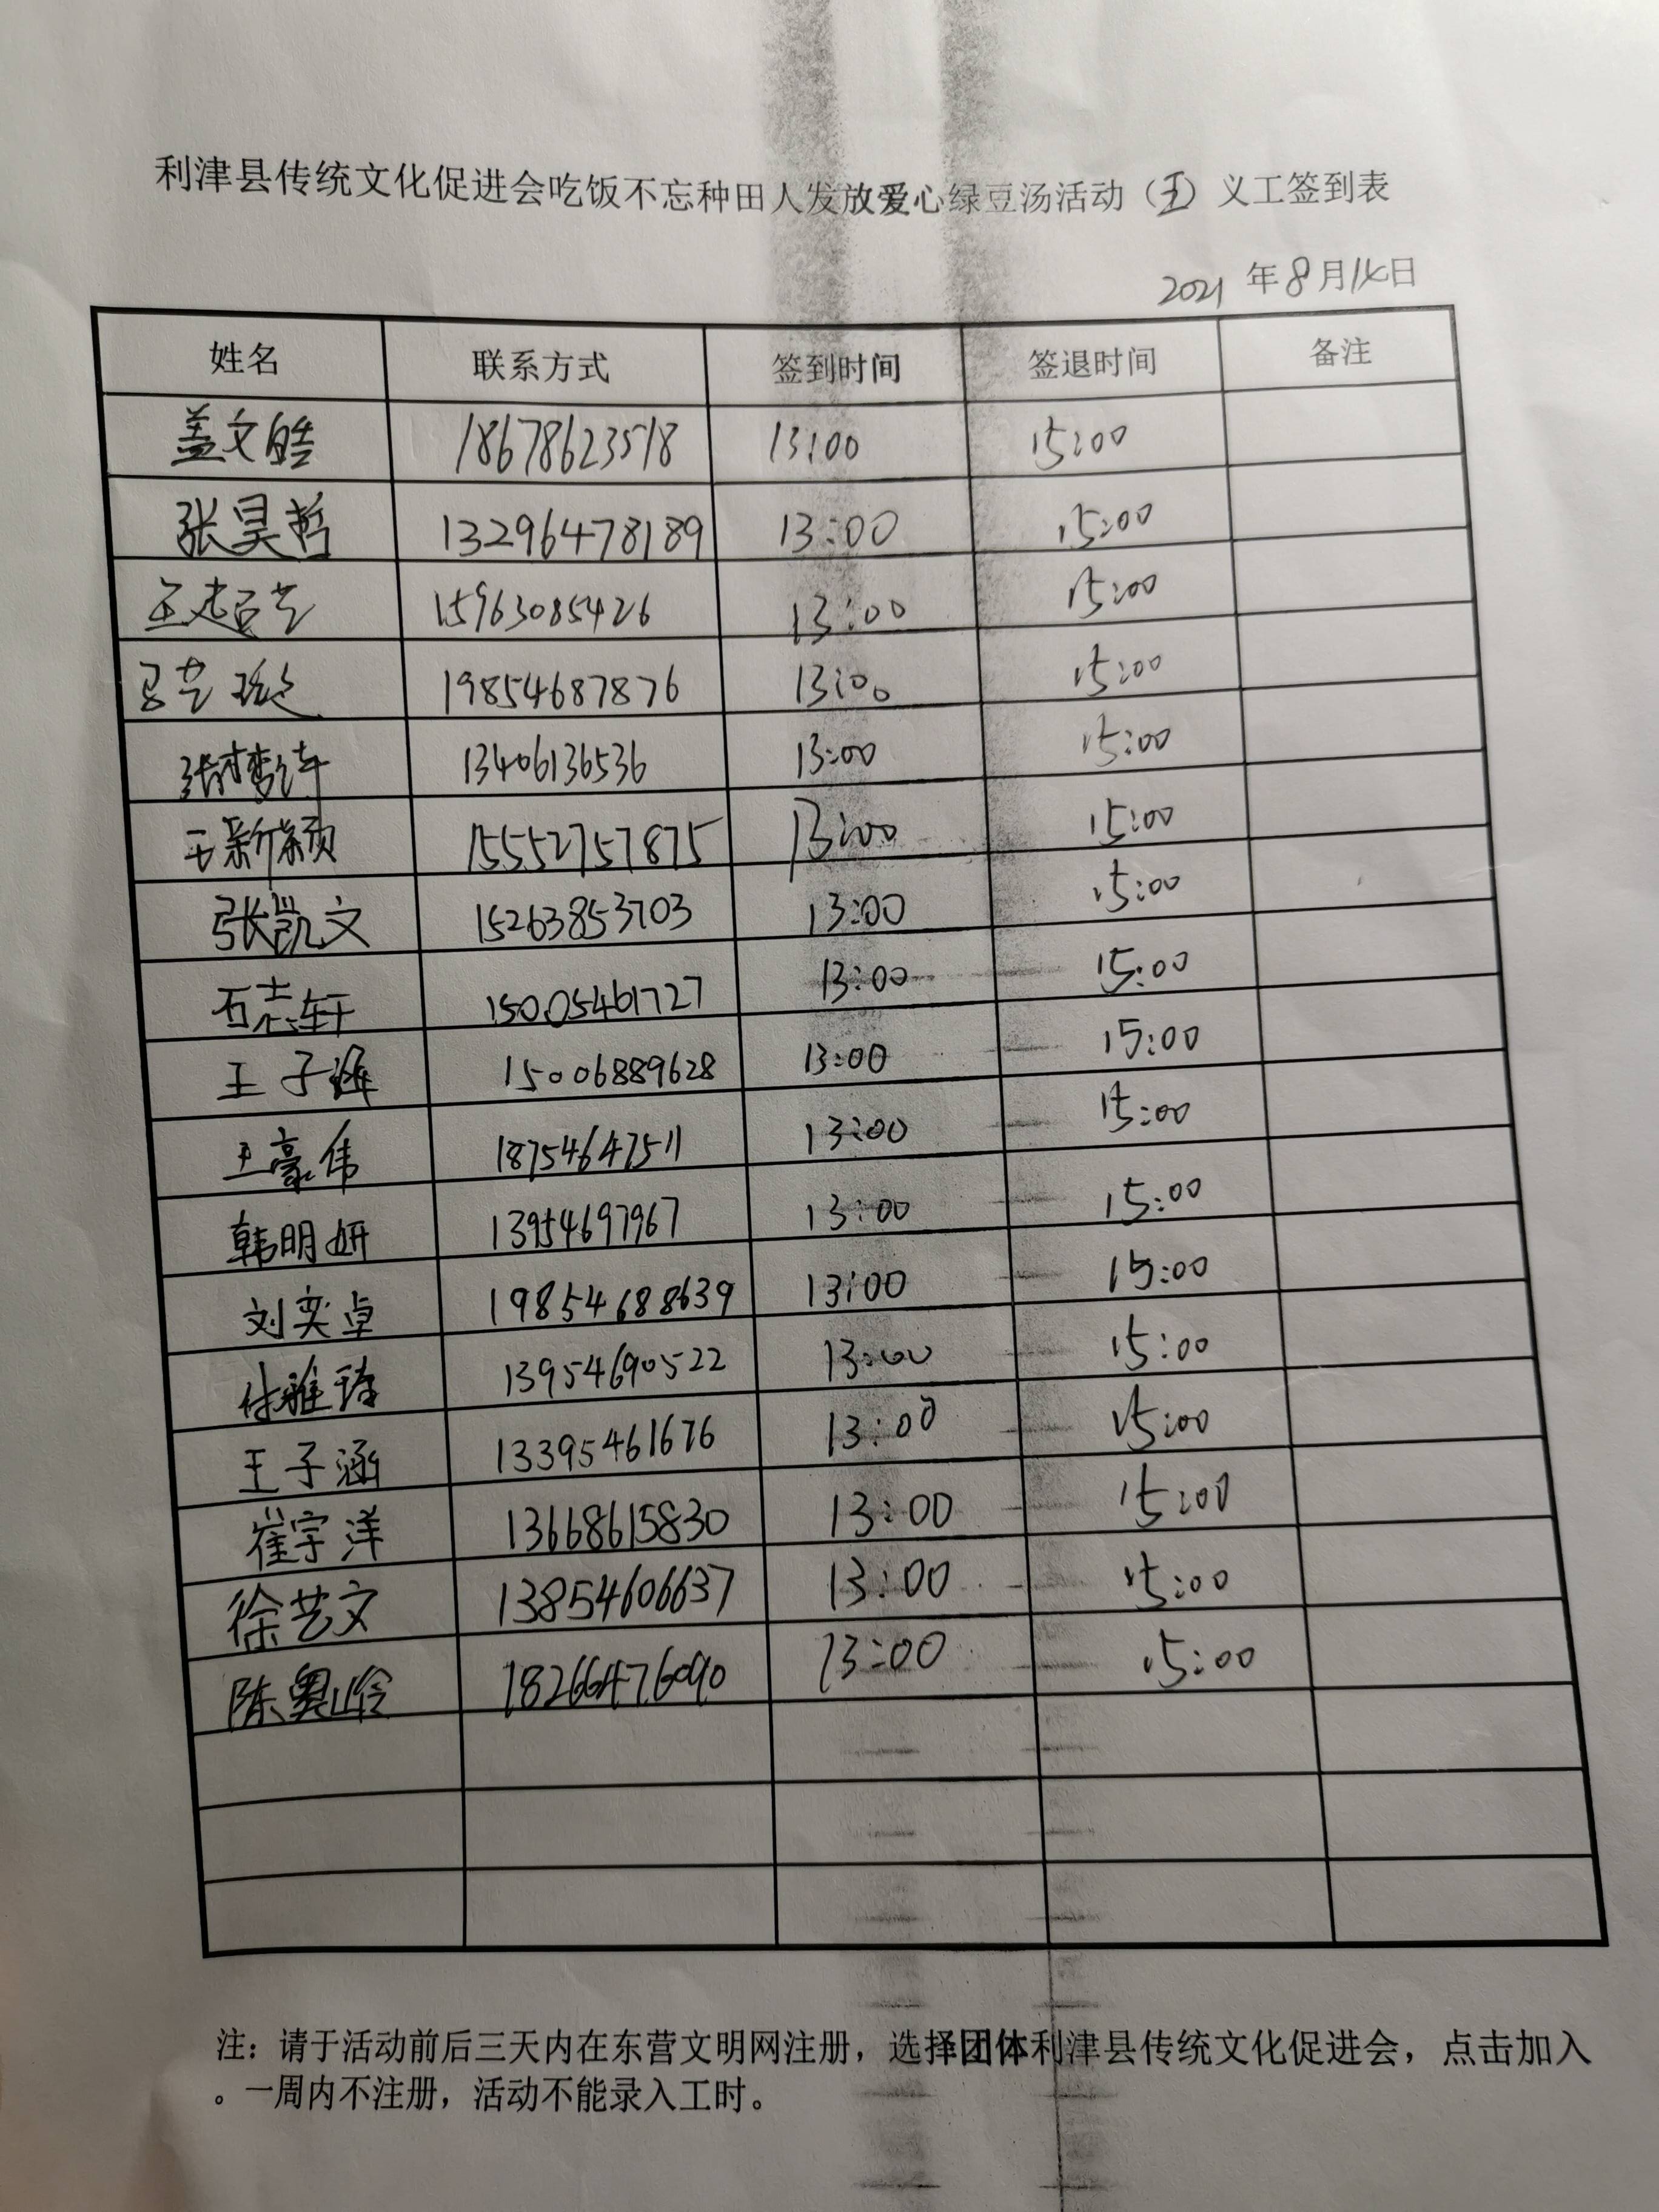 利津县传统文化促进会吃饭不忘种田人发放爱心绿豆汤活动（五）义工签到表
2021 年8月14日
姓名 联系方式 签到时间 签退时间 备注
盖文皓 18678623518 13:00 15:00
张昊哲 13296478189 13:00 15:00
15963085426 13:00 15:00
19854687876 13:00 15:00
13406136536 13:00 15:00
王新颖 15552757875 13:00 15:00
张凯文 15263853703 13:00 15:00
石志轩 15005461727 13:00 15:00
王子涵 15006889628 13:00 15:00
王豪伟 18754647511 13:00 15:00
韩明妍 13954697967 13:00 15:00
刘奕卓 19854688639 13:00 15:00
付雅琦 13954690522 13:00 15:00
王子涵 13395461676 13:00 15:00
崔宇洋 13668615830 13:00 15:00
徐艺文 13854606637 13:00 15:00
陈奥岭 18266476090 13:00 15:00
注：请于活动前后三天内在东营文明网注册，选择团体利津县传统文化促进会，点击加入
。一周内不注册，活动不能录入工时。